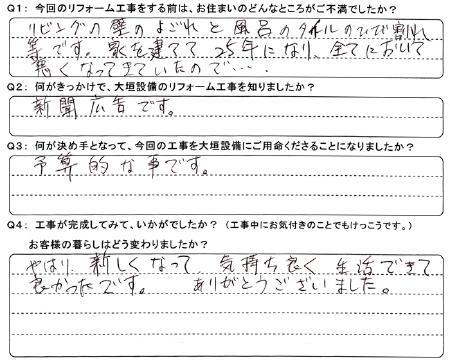 Q1: 今回のリフォーム工事をする前は、お住まいのどんなところがご不満でしたか?
リビングの壁のよごれと風呂のタイルのひび割れ
等です。家を建てて25年になり、全てにおいて
悪くなってきていたので…。
Q2: 何がきっかけで、大垣設備のリフォーム工事を知りましたか?
新聞広告です。
Q3: 何が決め手となって、今回の工事を大垣設備にご用命くださることになりましたか?
予算的な事です。
Q4: 工事が完成してみて、いかがでしたか?(工事中にお気付きのことでもけっこうです。)
お客様の暮らしはどう変わりましたか?
やはり新しくなって気持ち良く生活できて
良かったです。ありがとうございました。